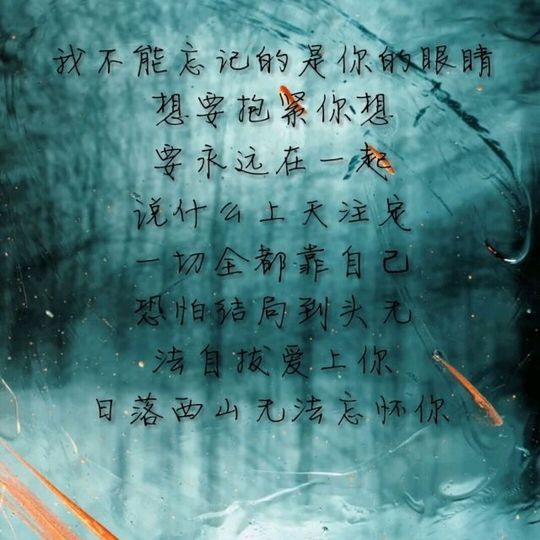 我不能忘记的是你的眼睛
想要抱紧你想
要永远在一起
说什么上天注定
一切全都靠自己
恐怕结局到头无
法自拔爱上你
日落西山无法忘怀你